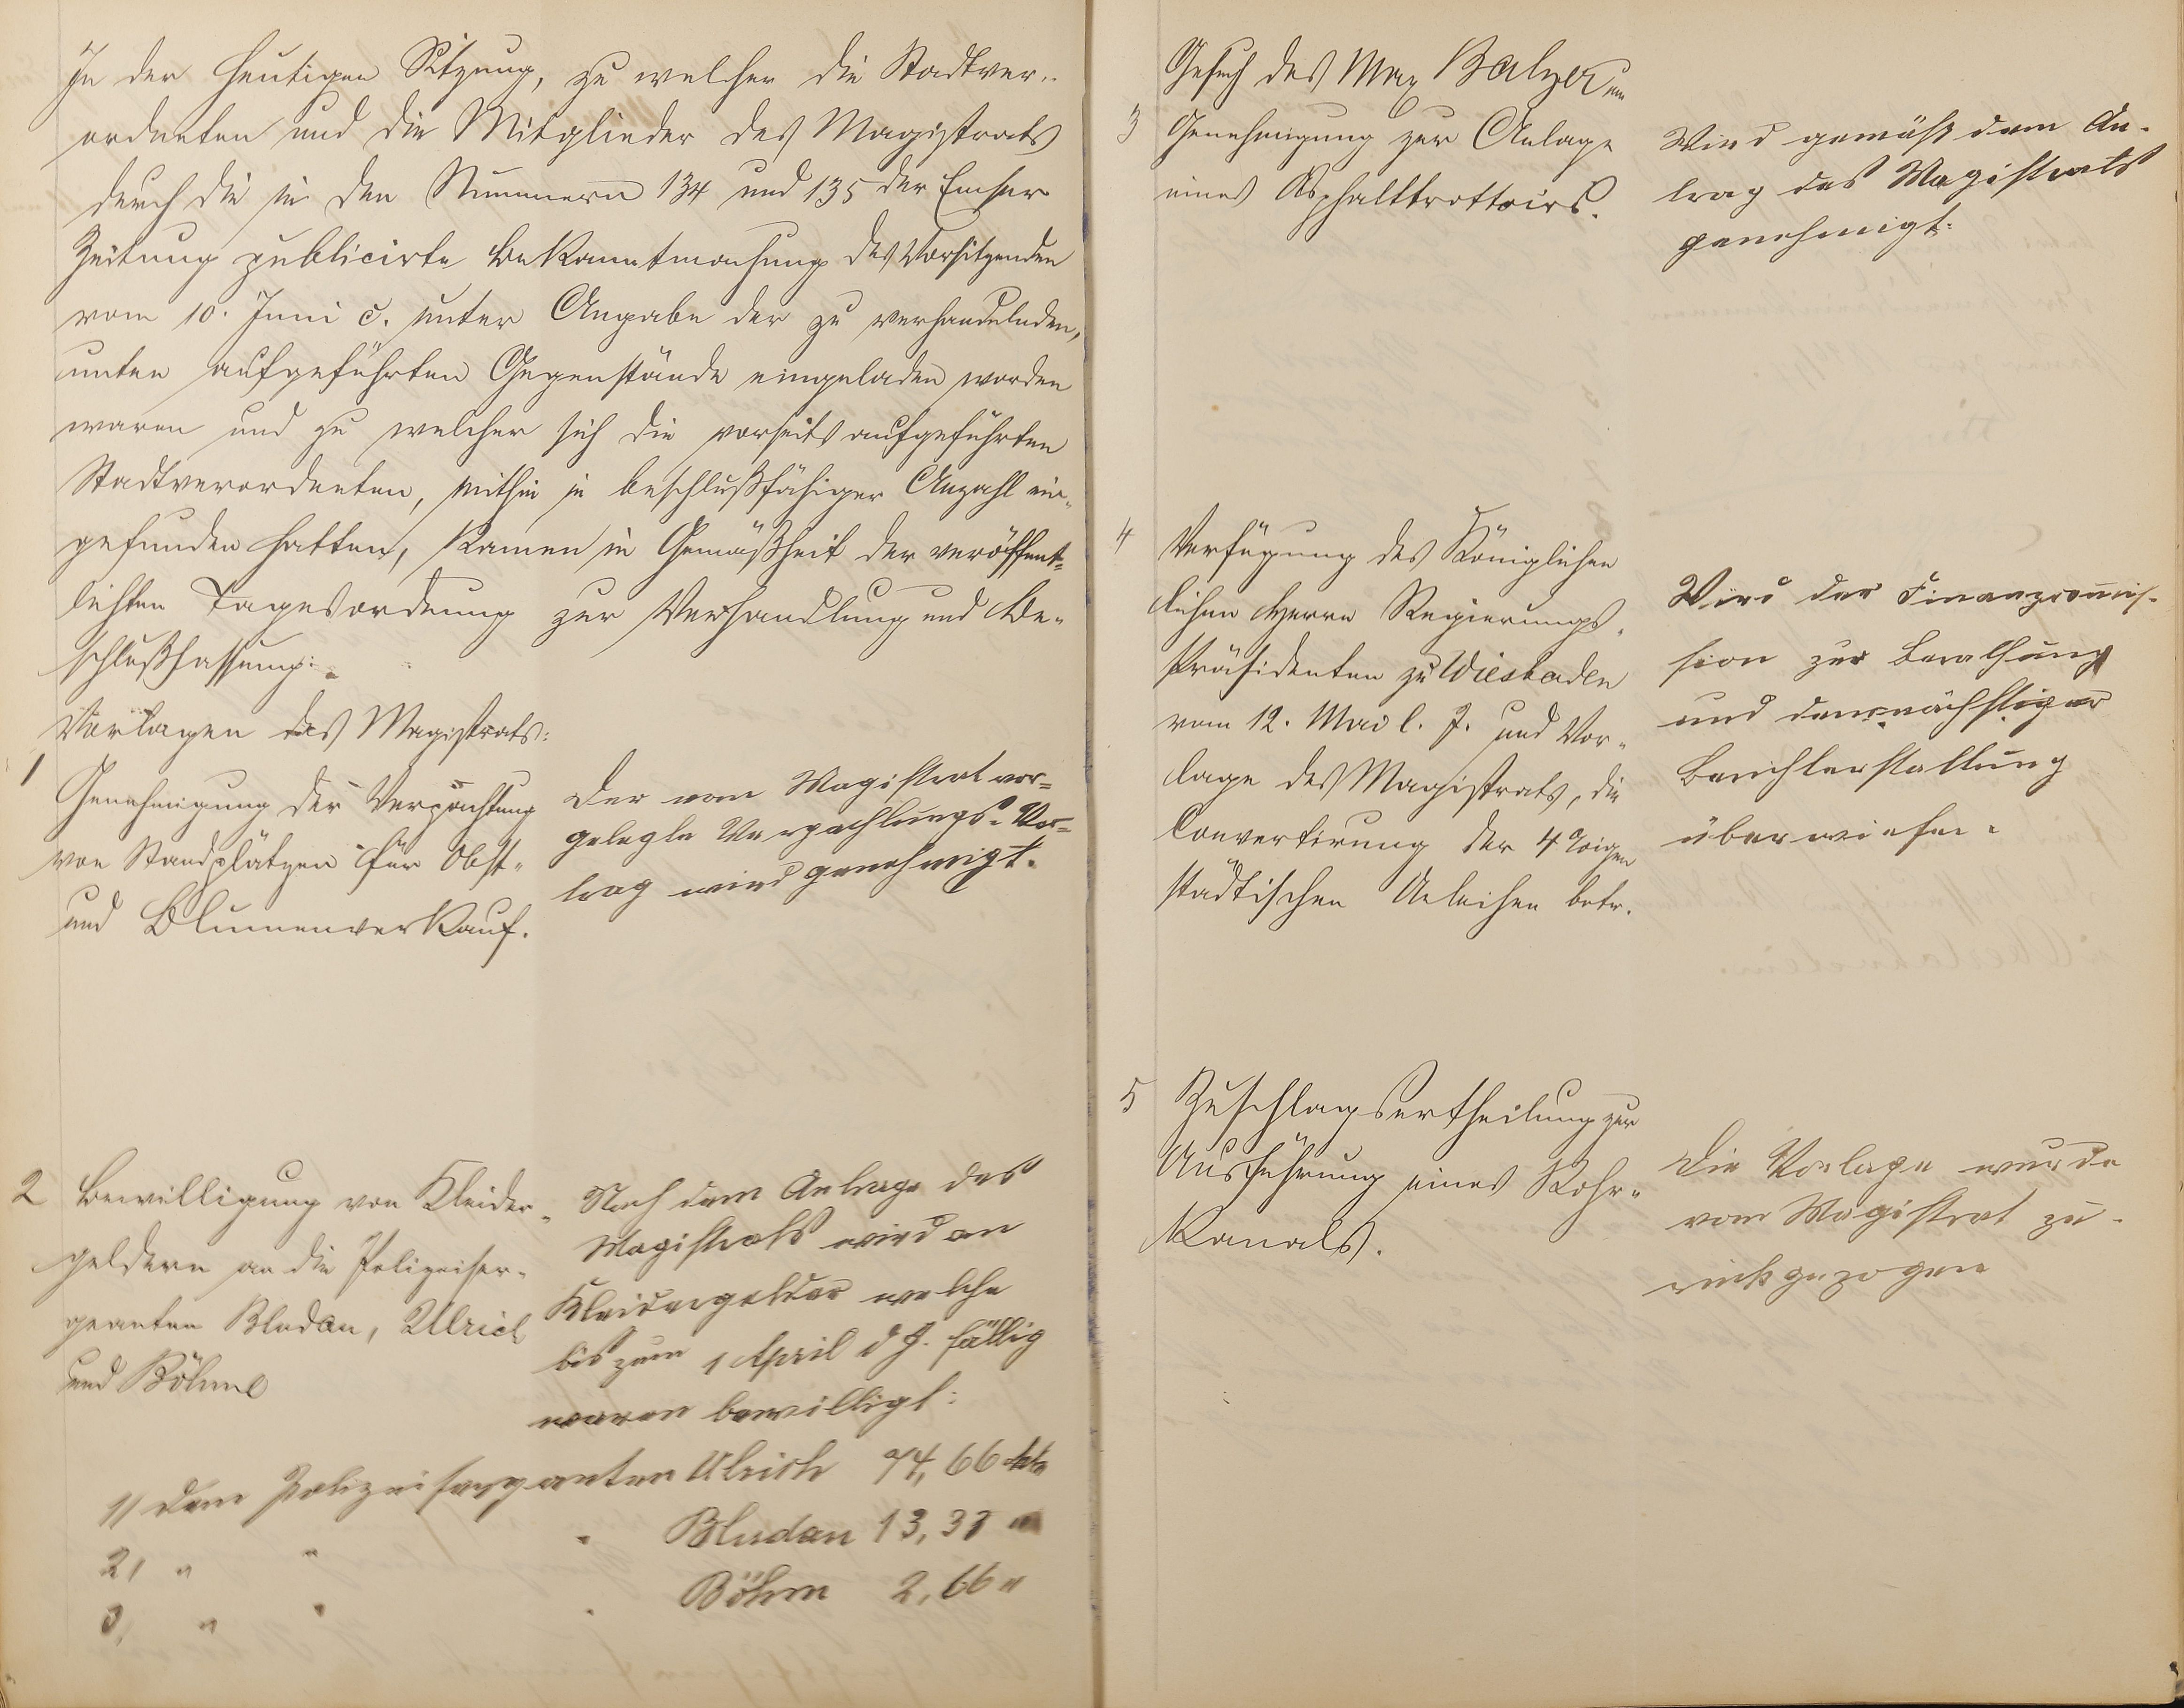 In der heutigen Sitzung, zu welcher die Stadtver-
ordneten und die Mitglieder des Magistrats
durch die in den Nummern 134 und 135 der Emser
Zeitung publicirte Bekanntmachung des Vorsitzenden
vom 10. Juni c. unter Angabe der zu verhandelnden,
unten aufgeführten Gegenstände eingeladen worden
waren und zu welcher sich die vorseits aufgeführten
Stadtverordneten, mithin in beschlußfähiger Anzahl ein-
gefunden hatten, kamen in Gemäßheit der veröffent-
lichten Tagesordnung zur Verhandlung und Be-
schlußfassung:
Vorlagen des Magistrats:
1
Genehmigung der Verpachtung
von Standplätzen für Obst-
und Blumenverkauf.
Der vom Magistrat vor-
gelegte Verpachtungs-Ver-
trag wird genehmigt.
2 Bewilligung von Kleider-
geldern an die Polizeiser-
geanten Bludau, Ulrich
und Böhme
Nach dem Antrage des
Magistrats wird an
Kleidergelder welche
bis zum 1 April d J. fällig
waren bewilligt:
1/ dem Polizeisergeanten Ulrich 74,66 Mk
2/ " " " Bludau 13,33 "
3/ " " " Böhm 2,66 "
Gesuch des Max Balzer um
3 Genehmigung zur Anlage
eines Asphalttrottoirs.
Wird gemäß dem An-
trag des Magistrats
genehmigt.
4 Verfügung des Königlichen
lichen Herrn Regierungs-
Präsidenten zu Wiesbaden
vom 12. Mai l. J. und Vor-
lage des Magistrats, die
Convertirung der 4%igen
städtischen Anleihen betr.
Wird der Finanzcommis-
sion zur Berathung
und demnächstiger
Berichterstattung
überwiesen.
5 Zuschlagsertheilung zur
Ausführung eines Rohr-
Kanals.
Die Vorlage wurde
vom Magistrat zu-
rückgezogen